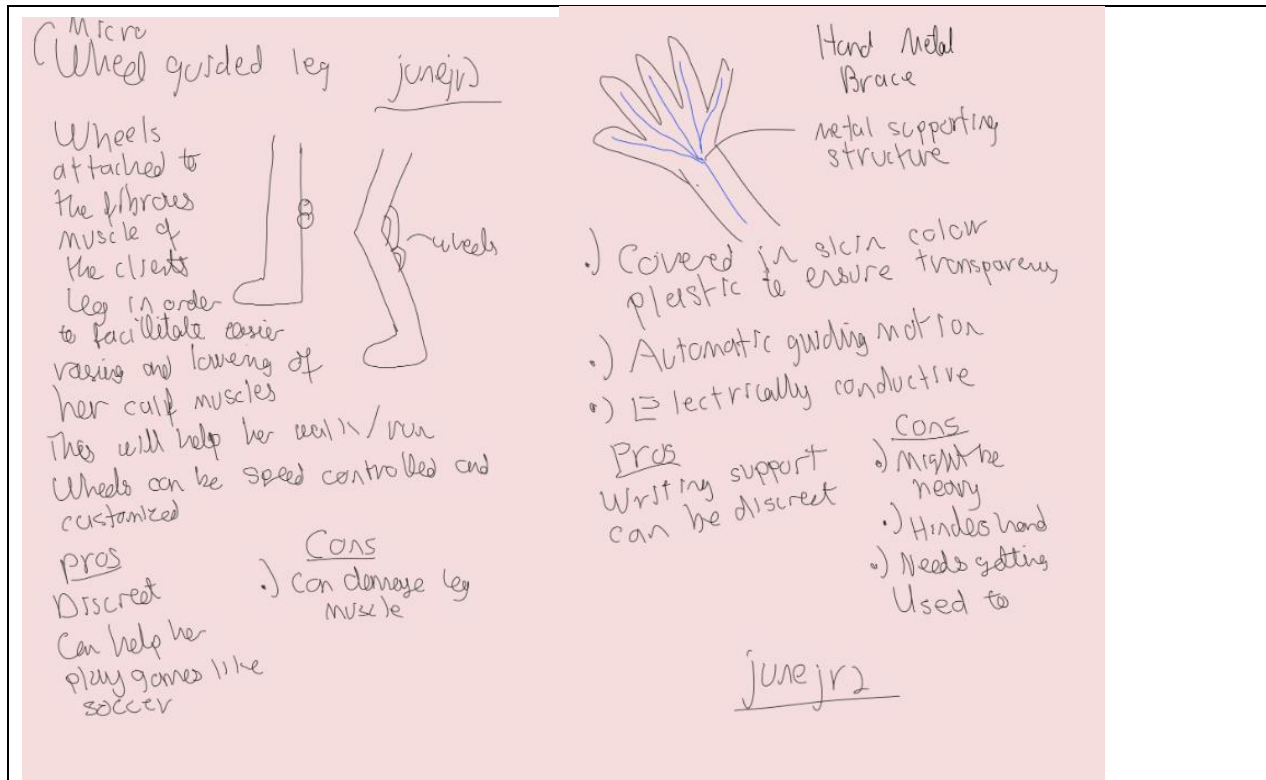 Micro
Wheel guided leg
junejr2
Wheels
attached to
the fibrous
muscle of
the clients
leg in order
to facilitate easier
rasing and lowering of
her calf muscles
This will help her walk/run
Wheels can be speed controlled and
customized
wheels
pros
Discreet
Can help her
play games like
soccer
Cons
.) Can damage leg
muscle
Hand Metal
Brace
metal supporting
structure
.) Covered in skin colour
plastic to ensure transparency
.) Automatic guiding motion
.) Electrically conductive
Pros
Writing support
can be discreet
Cons
.) Might be
heavy
.) Hinders hand
.) Needs getting
Used to
junejr2